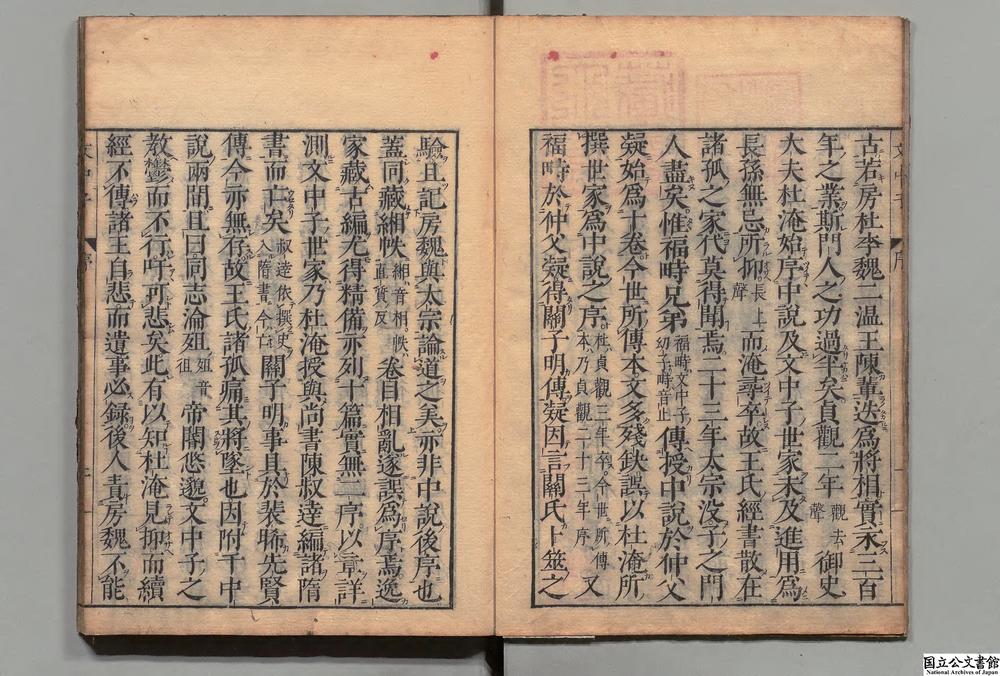 古若房杜李魏二温王陳輩迭爲將相實永三百
年之業斯門人之功過半矣貞觀二年觀去聲御史
大夫杜淹始序中說及文中子世家未及進用爲
長孫無忌所抑長上聲而淹尋卒故王氏經書散在
諸孤之家代莫得聞焉二十三年太宗没子之門
人盡矣惟福畤兄弟福畤文中子幼子畤音止傳授中說於仲父
凝始爲十卷今世所傳本文多殘缺誤以杜淹所
撰世家爲中說之序杜貞觀三年卒今世所傳本乃貞觀二十三年序又
福畤於仲父凝得關子明傳凝因言關氏卜筮之
驗且記房魏與太宗論道之美亦非中說後序也
蓋同藏緗帙緗音相帙直質反卷目相亂遂誤爲序焉逸
家藏古編尤得精備亦列十篇實無二序以章詳
測文中子世家乃杜淹授與尚書陳叔達編諸隋
書而亡矣叔達依撰史入隋書今亡關子明事具於裴晞先賢
傳今亦無存故王氏諸孤痛其將墜也因附于中
說兩間且曰同志淪殂殂音徂帝閽悠邈文中子之
教鬱而不行吁可悲矣此有以知杜淹見抑而續
經不傳諸王自悲而遺事必錄後人責房魏不能
国立公文書館
National Archives of Japan